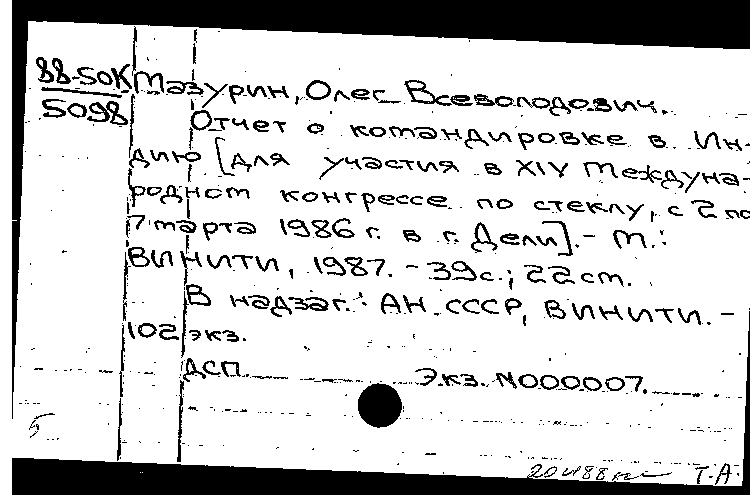 88-50К Мазурин, Олес Всеволодович.
5098
Отчет о командировке в Ин-
дию [для участия в XIV Междуна-
родном конгрессе по стеклу, с 2 по
7 марта 1986 г. в г. Дели].- М.:
ВИНИТИ, 1987. - 39с.; 22 см.
В надзаг.: АН СССР, ВИНИТИ. -
102 экз.
ДСП Экз. №000007.
5
Т.А.